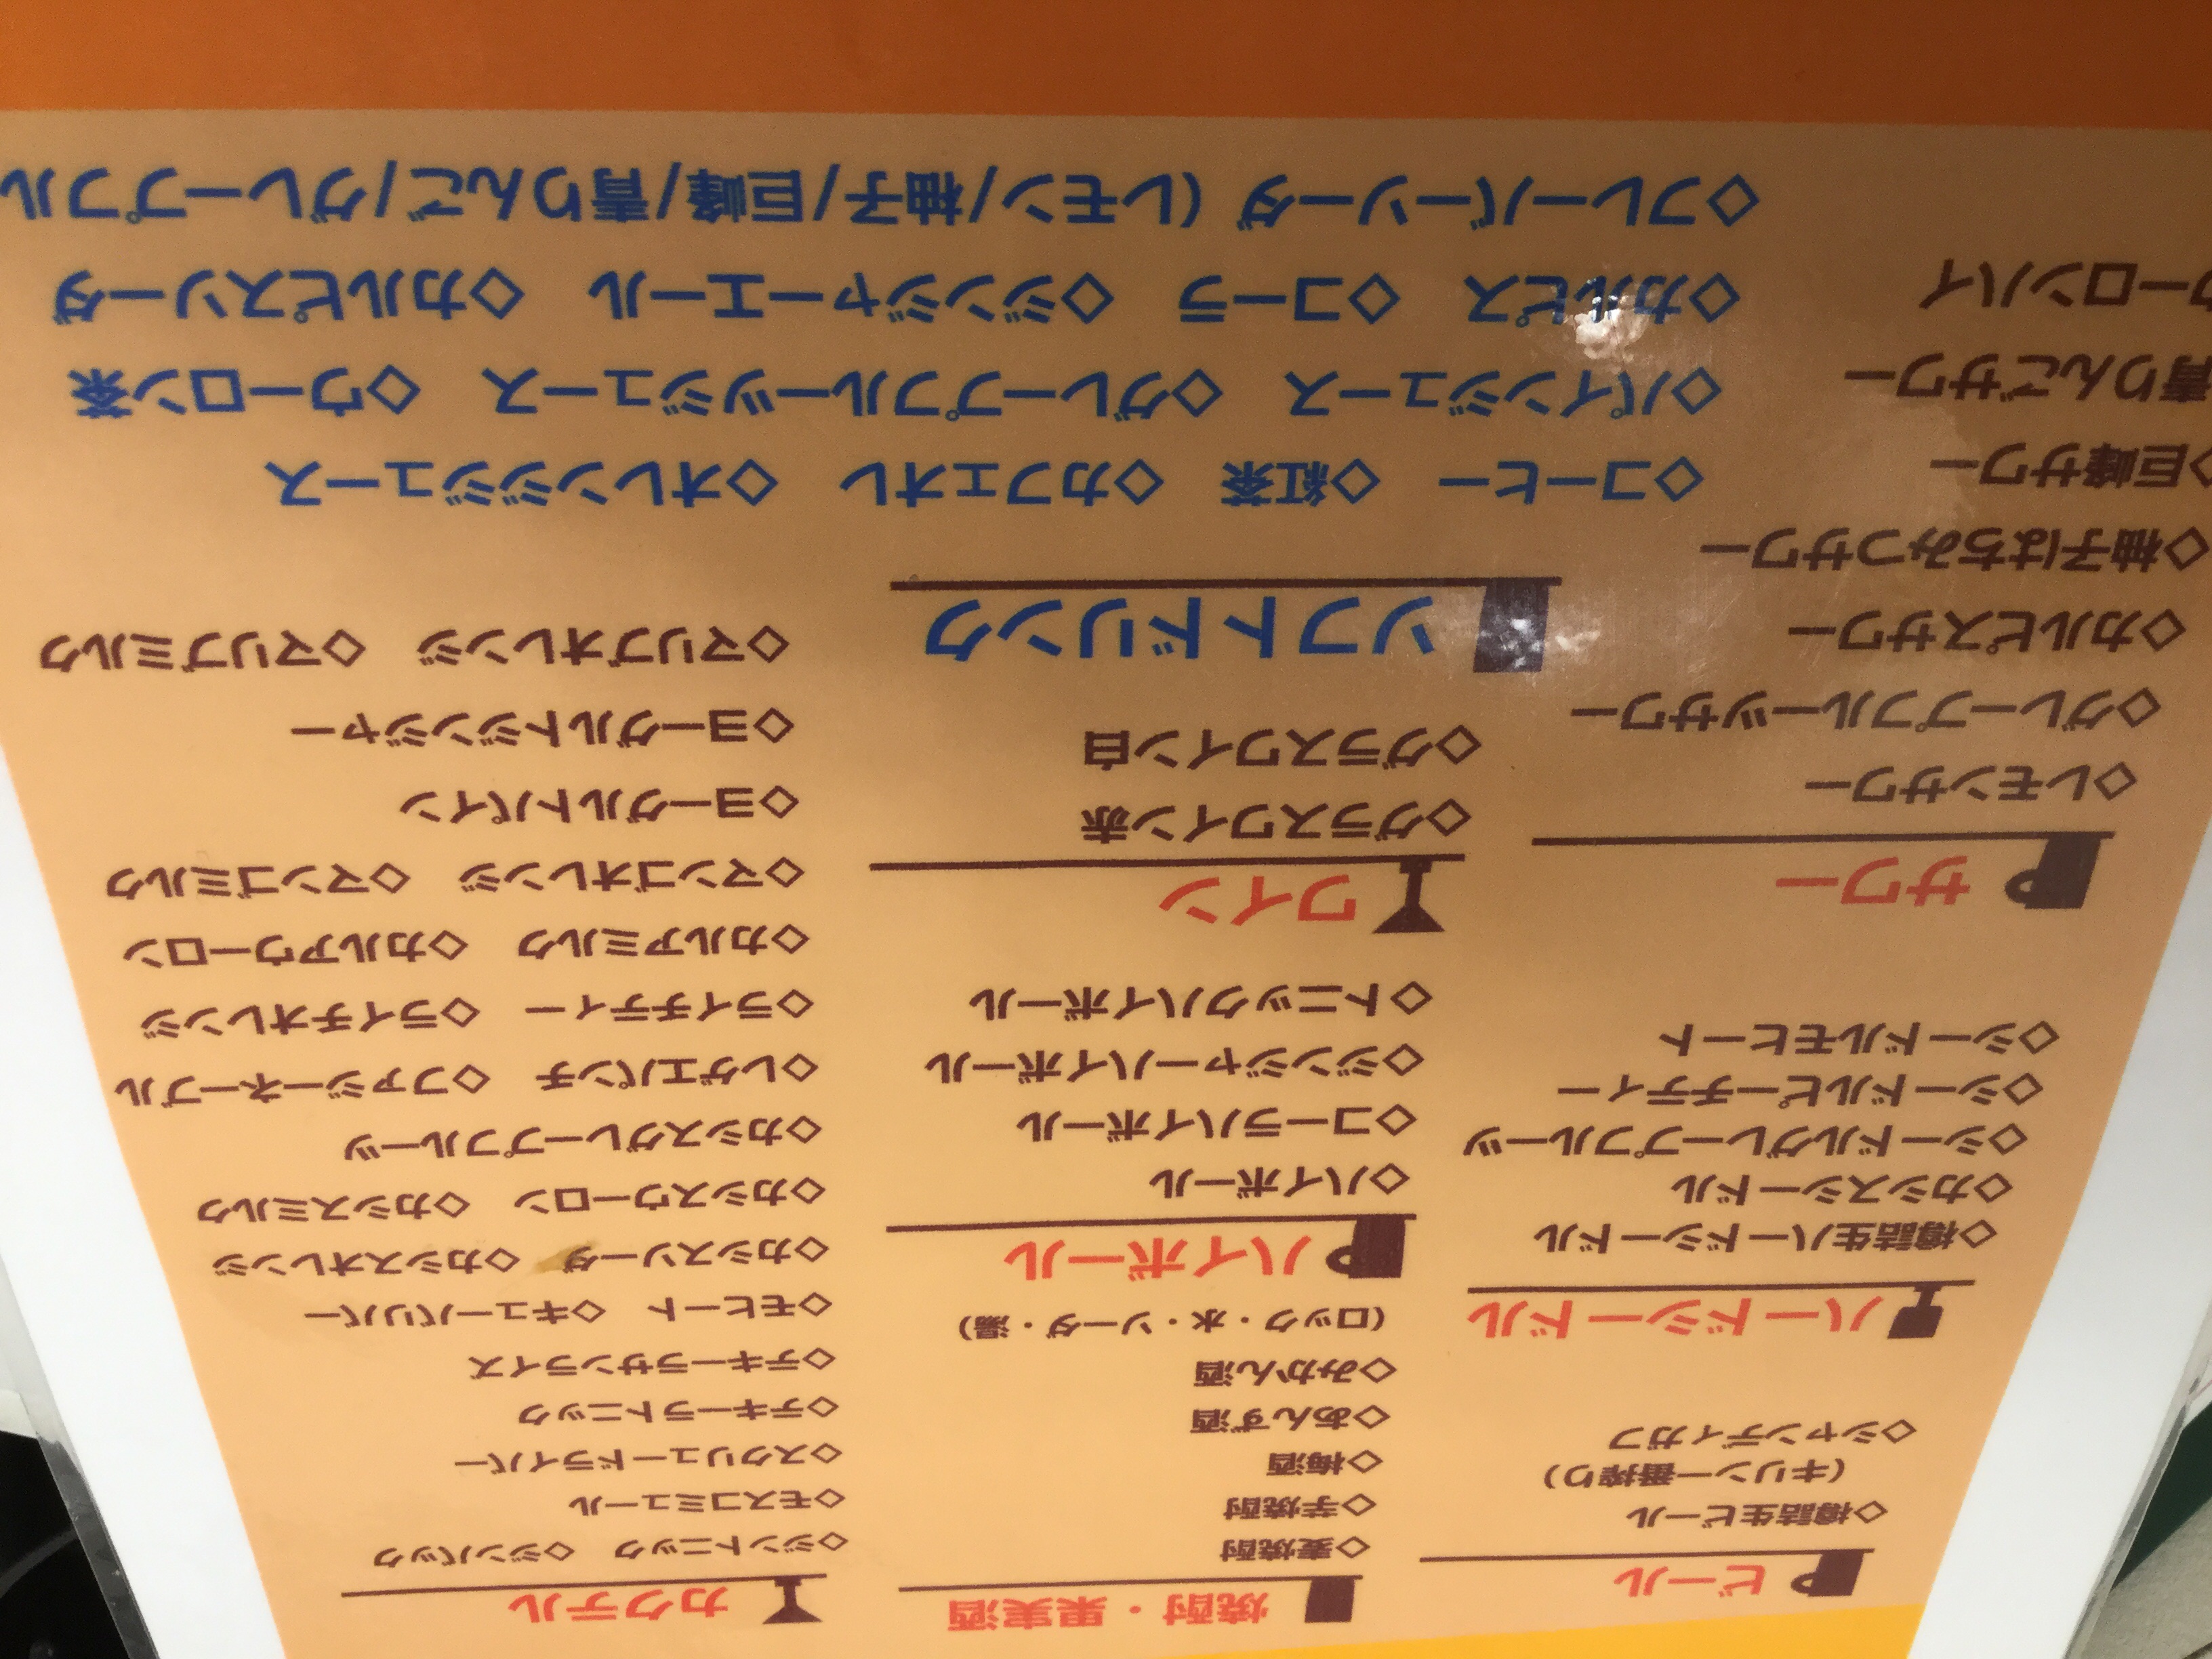 ビール
◇樽詰生ビール
(キリン一番搾り)
◇シャンディガフ
ハードシードル
◇樽詰生ハードシードル
◇カシスシードル
◇シードルグレープフルーツ
◇シードルピーチティー
◇シードルモヒート
サワー
◇レモンサワー
◇グレープフルーツサワー
◇カルピスサワー
◇柚子はちみつサワー
◇巨峰サワー
青りんごサワー
ウーロンハイ
焼酎・果実酒
◇麦焼酎
◇芋焼酎
◇梅酒
◇あんず酒
◇みかん酒
(ロック・水・ソーダ・湯)
ハイボール
◇ハイボール
◇コーラハイボール
◇ジンジャーハイボール
◇トニックハイボール
ワイン
◇グラスワイン赤
◇グラスワイン白
カクテル
◇ジントニック ◇ジンバック
◇モスコミュール
◇スクリュードライバー
◇テキーラトニック
◇テキーラサンライズ
◇モヒート ◇キューバリバー
◇カシスソーダ ◇カシスオレンジ
◇カシスウーロン ◇カシスミルク
◇カシスグレープフルーツ
◇レゲエパンチ ◇ファジーネーブル
◇ライチティー ◇ライチオレンジ
◇カルアミルク ◇カルアウーロン
◇マンゴオレンジ ◇マンゴミルク
◇ヨーグルトパイン
◇ヨーグルトジンジャー
◇マリブオレンジ ◇マリブミルク
ソフトドリンク
◇コーヒー ◇紅茶 ◇カフェオレ ◇オレンジジュース
◇パインジュース ◇グレープフルーツジュース ◇ウーロン茶
◇カルピス ◇コーラ ◇ジンジャーエール ◇カルピスソーダ
◇フレーバーソーダ (レモン/柚子/巨峰/青りんご/グレープフル